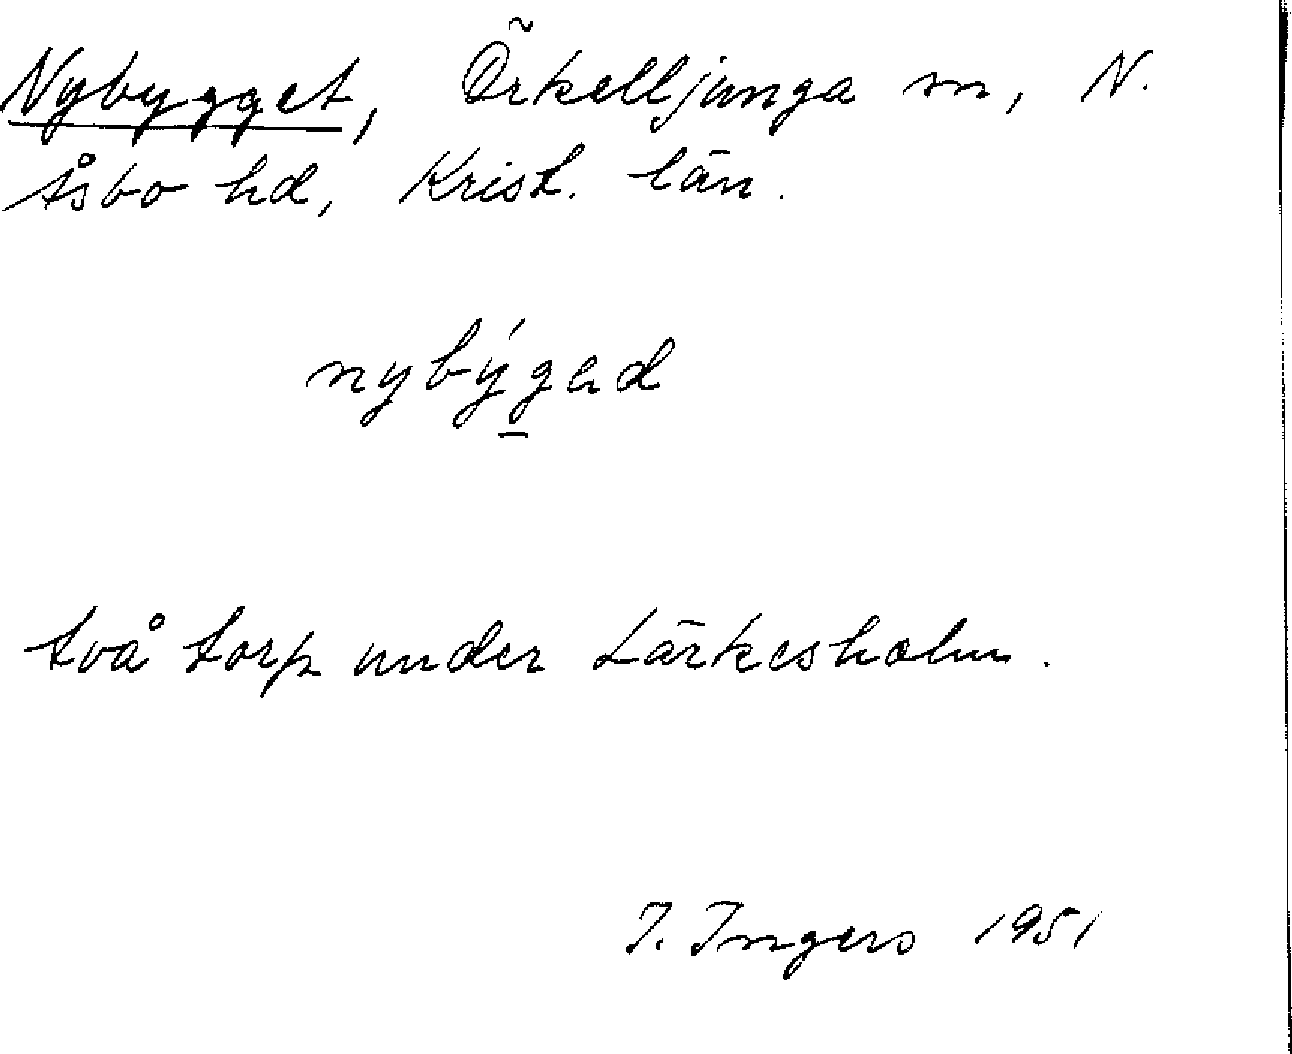 Nybygget, Örkelljunga sn, N.
Åsbo hd, Krist. län.
nybýg̲ad
två torp under Lärkesholm.
I. Ingers 1951